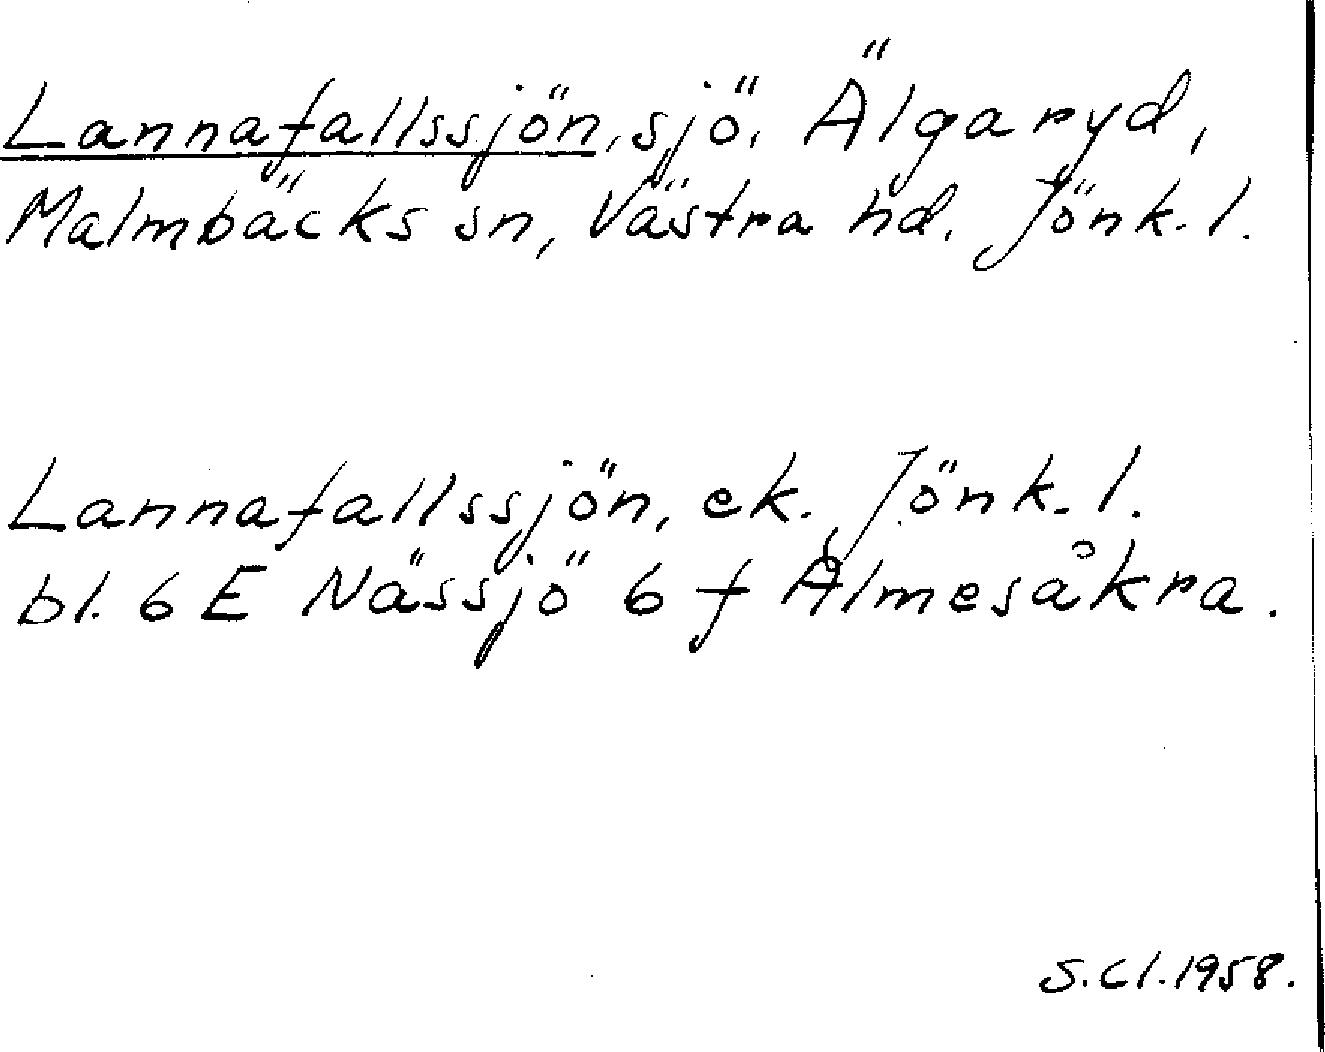 Lannafallssjön, sjö. Älgaryd,
Malmbäcks sn, Västra hd. Jönk. l.
Lannafallssjön, ek. Jönk. l.
bl. 6 E Nässjö 6 f Ålmesåkra.
S.Cl.1958.